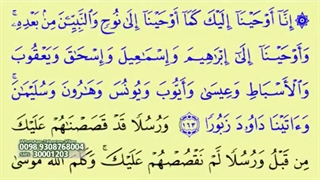 ۞ إِنَّآ أَوْحَيْنَآ إِلَيْكَ كَمَآ أَوْحَيْنَآ إِلَىٰ نُوحٍ وَٱلنَّبِيِّـۧنَ مِنۢ بَعْدِهِۦ ۚ
وَأَوْحَيْنَآ إِلَىٰٓ إِبْرَٰهِيمَ وَإِسْمَـٰعِيلَ وَإِسْحَـٰقَ وَيَعْقُوبَ
وَٱلْأَسْبَاطِ وَعِيسَىٰ وَأَيُّوبَ وَيُونُسَ وَهَـٰرُونَ وَسُلَيْمَـٰنَ ۚ
وَءَاتَيْنَا دَاوُۥدَ زَبُورًا ١٦٣ وَرُسُلًا قَدْ قَصَصْنَـٰهُمْ عَلَيْكَ
مِن قَبْلُ وَرُسُلًا لَّمْ نَقْصُصْهُمْ عَلَيْكَ ۚ وَكَلَّمَ ٱللَّهُ مُوسَىٰ
0098.9308768004
30001203